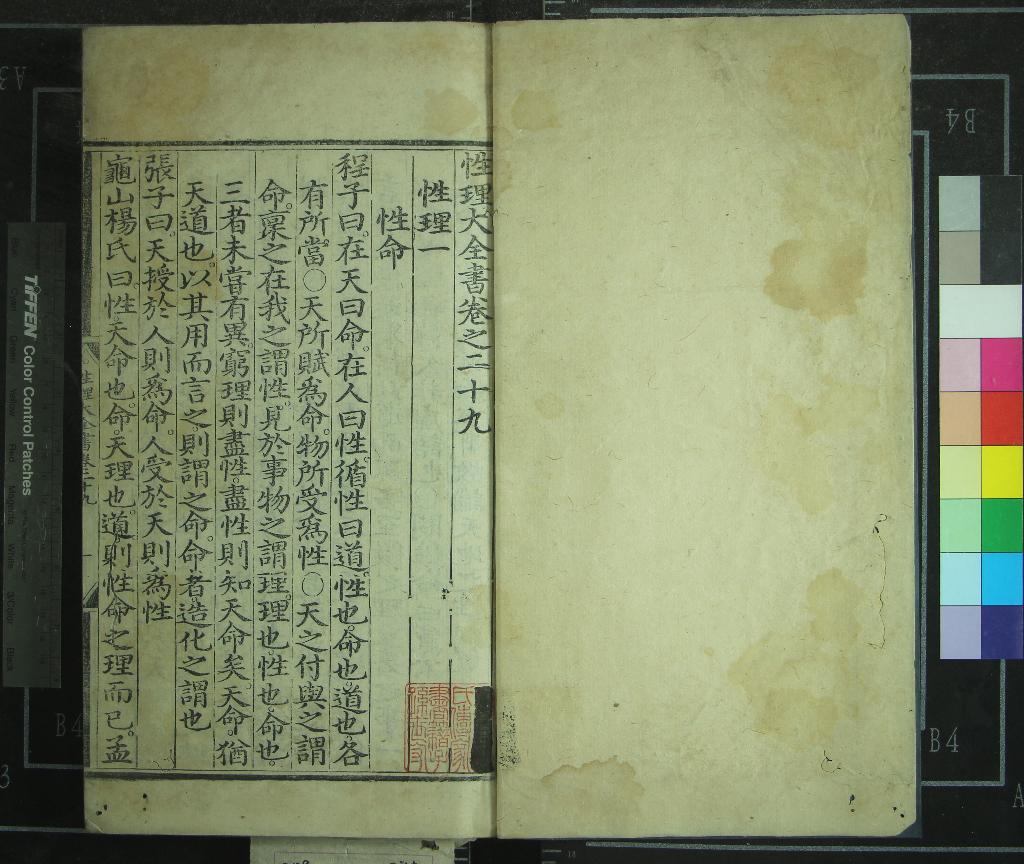 性理大全書卷之二十九
性理一
性命
程子曰。在天曰命。在人曰性。循性曰道。性也。命也。道也。各
有所當。○天所賦爲命。物所受爲性。○天之付與之謂
命。稟之在我之謂性。見於事物之謂理。理也。性也。命也。
三者未嘗有異。窮理則盡性。盡性則知天命矣。天命。猶
天道也。以其用而言之。則謂之命。命者。造化之謂也
張子曰。天授於人則爲命。人受於天則爲性
龜山楊氏曰。性。天命也。命。天理也。道。則性命之理而已。孟
性理大全書卷二十九
TIFFEN Color Control Patches
B4
B4
B4
A3